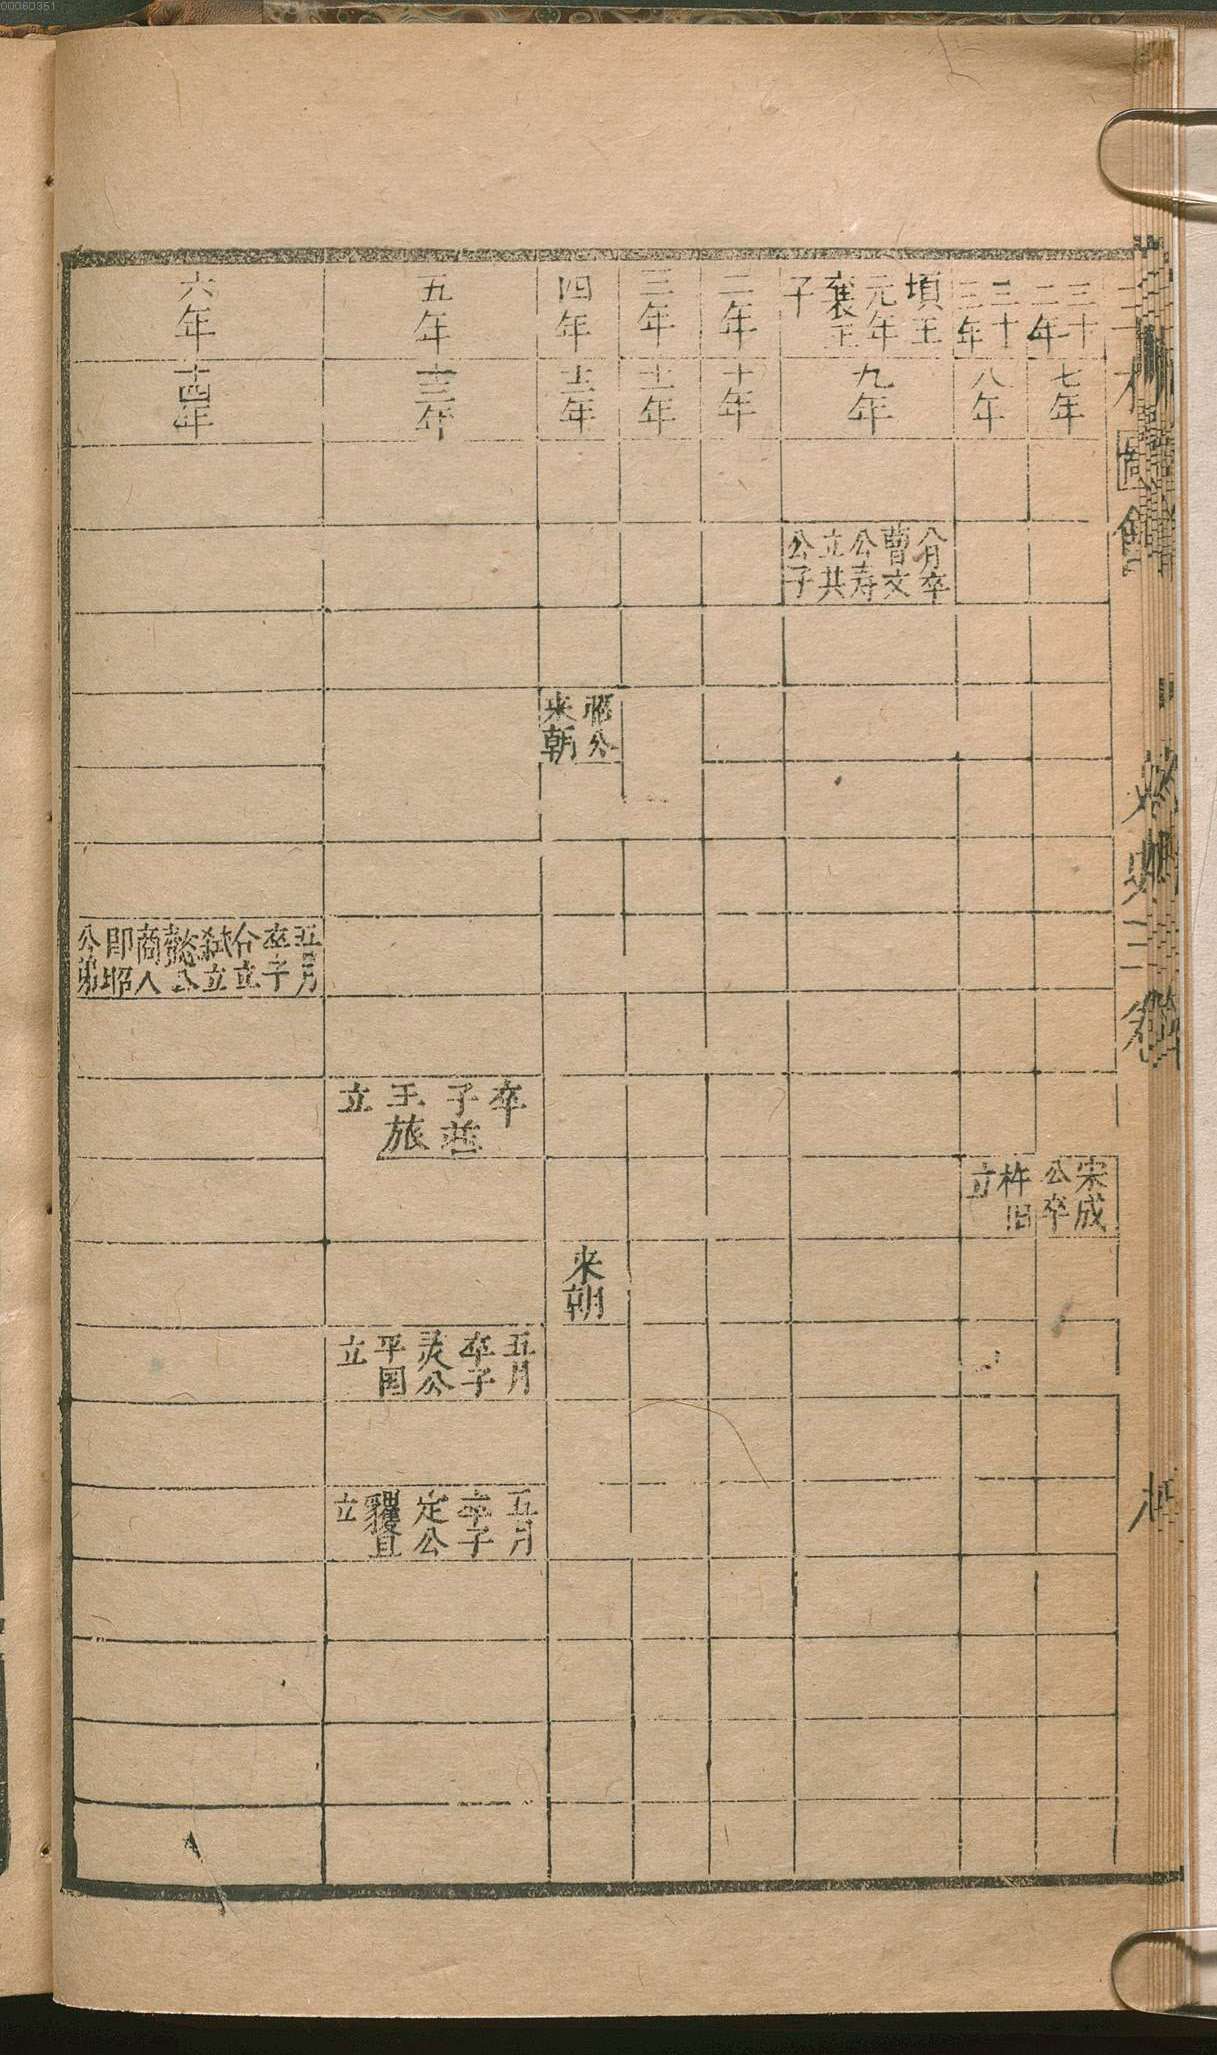 00060351
三十二年
七年
三十三年
八年
宋成公卒杵旧立
頃王元年襄王子
九年
八月卒曹文公寿立共公子
二年
十年
三年
十一年
四年
十二年
公来朝
来朝
五年
十三年
卒子荘王旅立
五月卒子灵公平国立
五月卒子定公貜且立
六年
十四年
五月卒子舍立弑立懿公商人即昭公弟